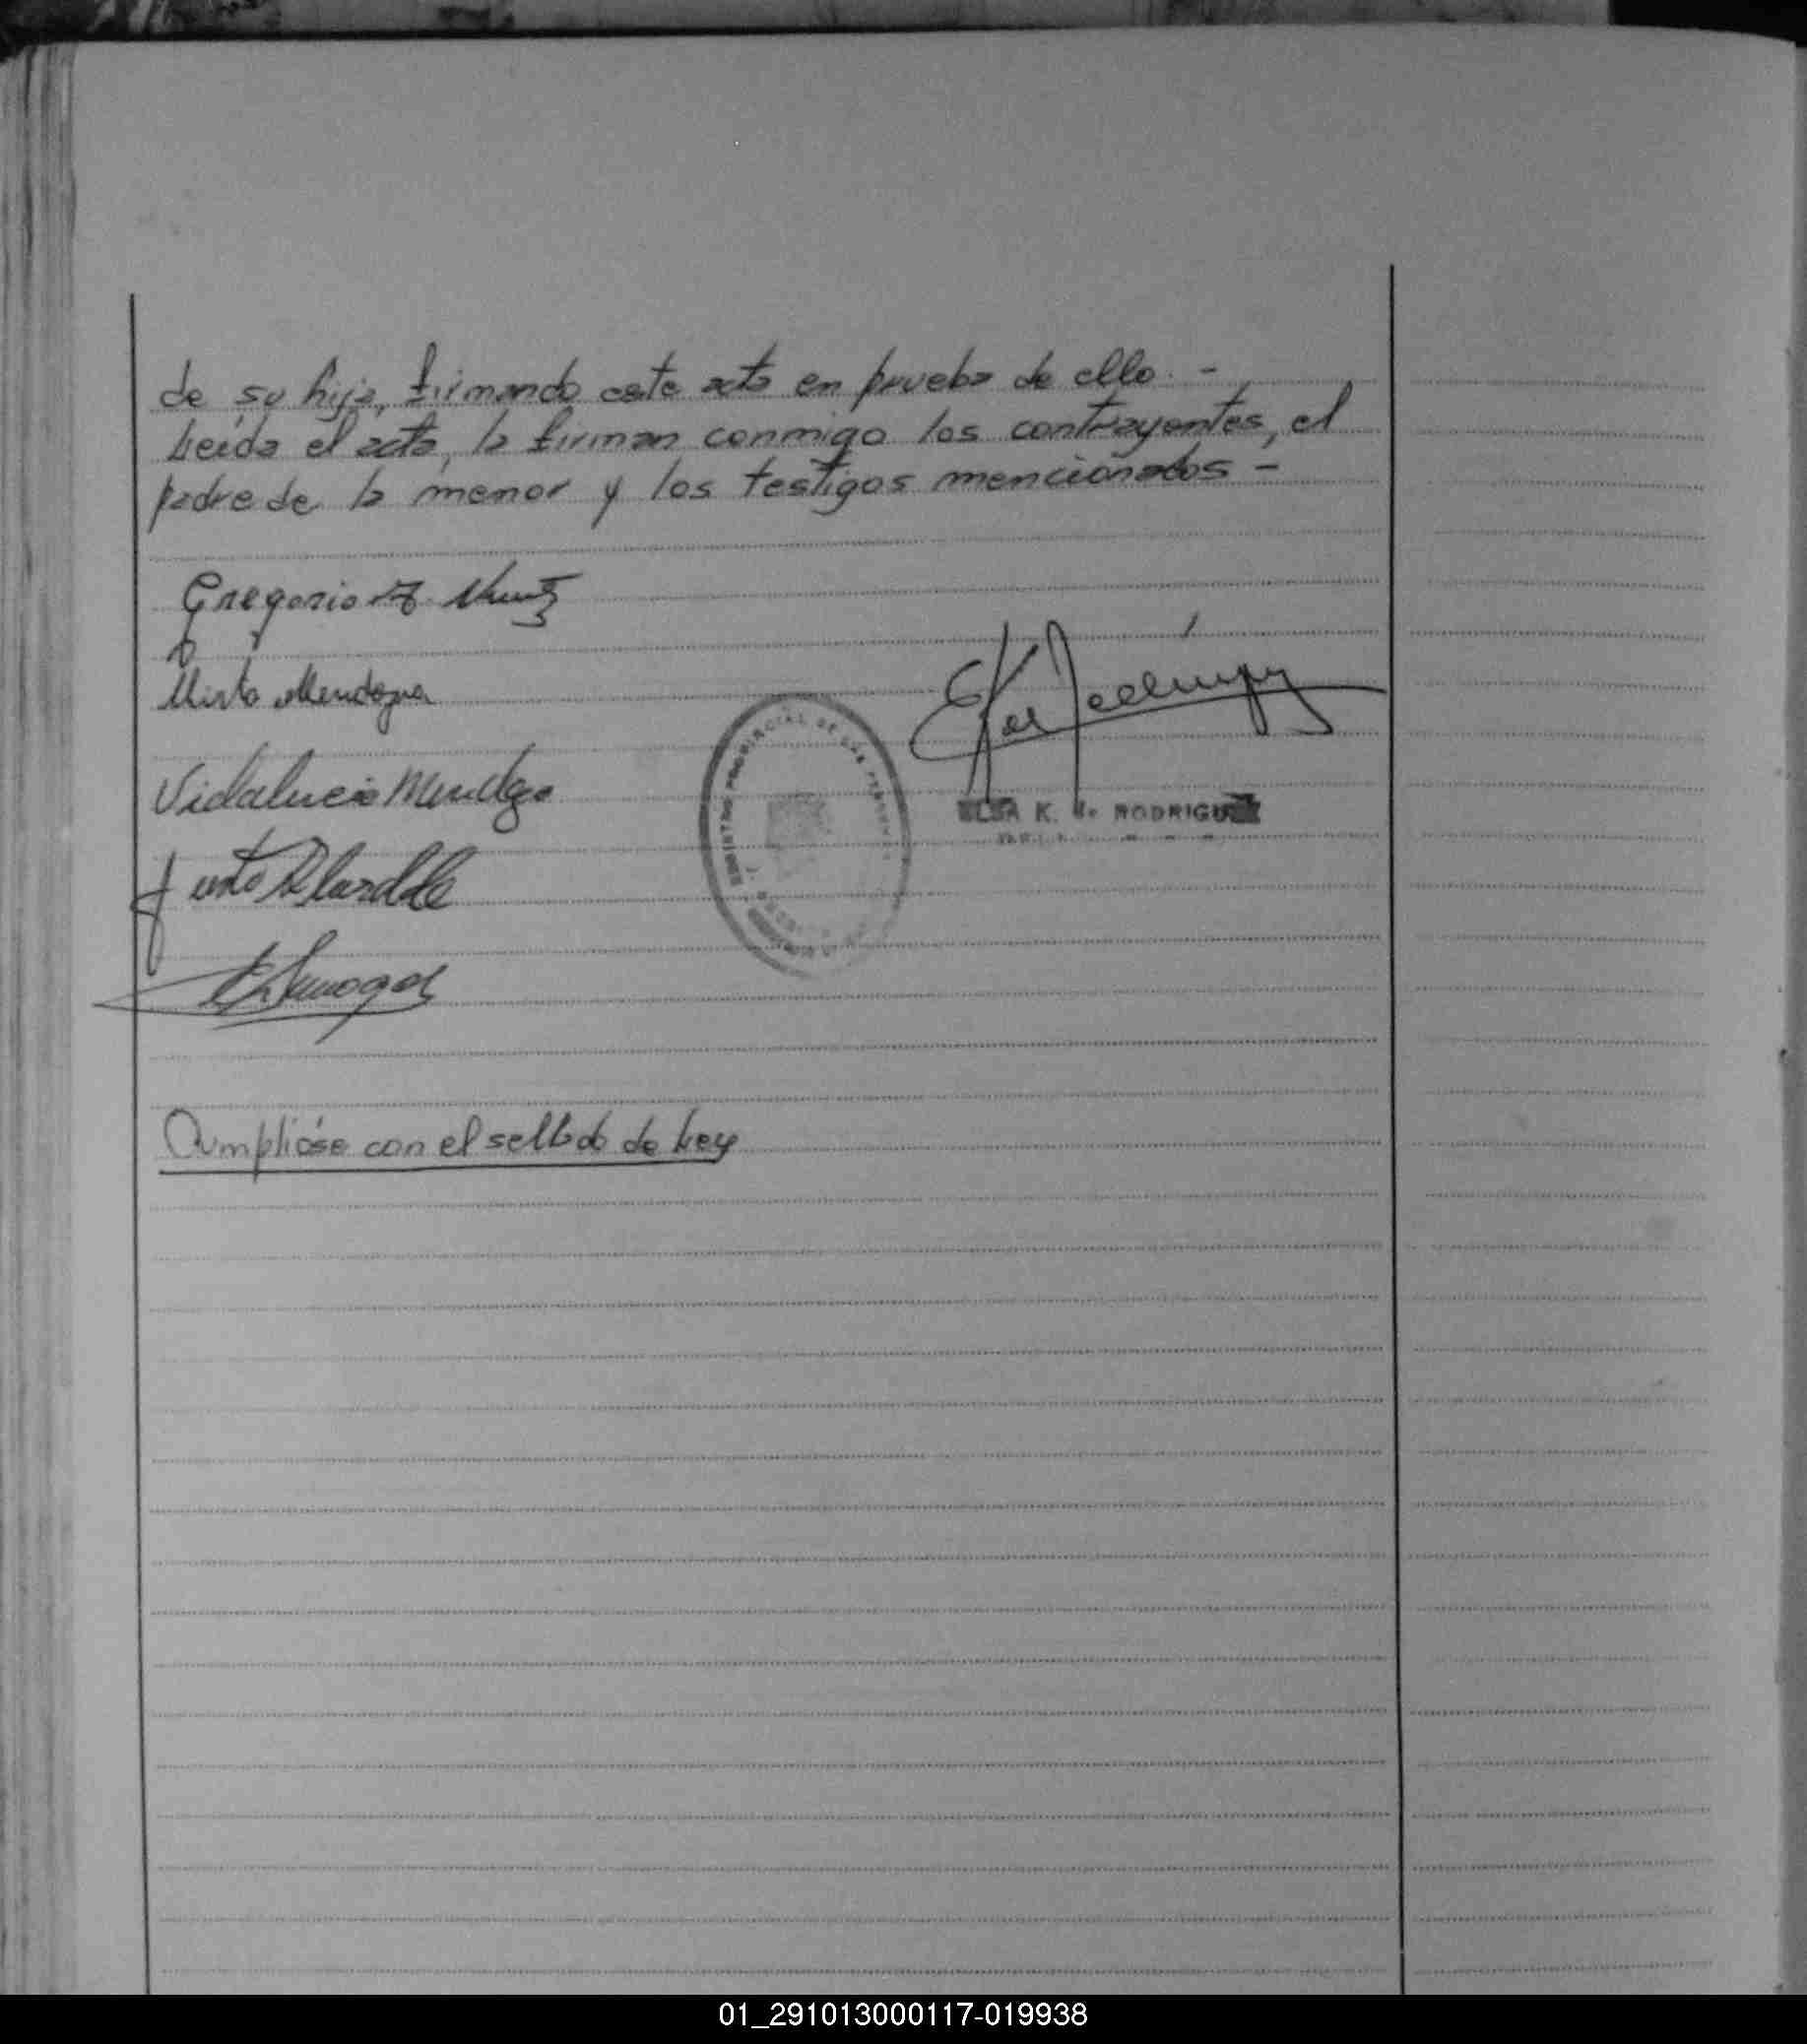 de su hija, firmando este acta en prueba de ello. -
Leída el acta, la firman conmigo los contrayentes, el
padre de la menor y los testigos mencionados -
Gregorio
Mirta Mendoza
Mendoza
Justo
ELSA K. de RODRIGUEZ
REGISTRO PROVINCIAL DE LAS PERSONAS
Cumplióse con el sellado de Ley
01_291013000117-019938